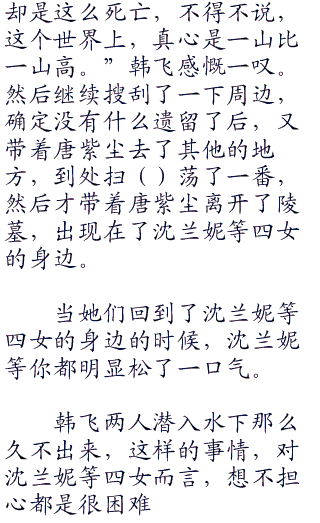 却是这么死亡，不得不说，
这个世界上，真心是一山比
一山高。”韩飞感慨一叹。
然后继续搜刮了一下周边，
确定没有什么遗留了后，又
带着唐紫尘去了其他的地
方，到处扫（）荡了一番，
然后才带着唐紫尘离开了陵
墓，出现在了沈兰妮等四女
的身边。
当她们回到了沈兰妮等
四女的身边的时候，沈兰妮
等你都明显松了一口气。
韩飞两人潜入水下那么
久不出来，这样的事情，对
沈兰妮等四女而言，想不担
心都是很困难